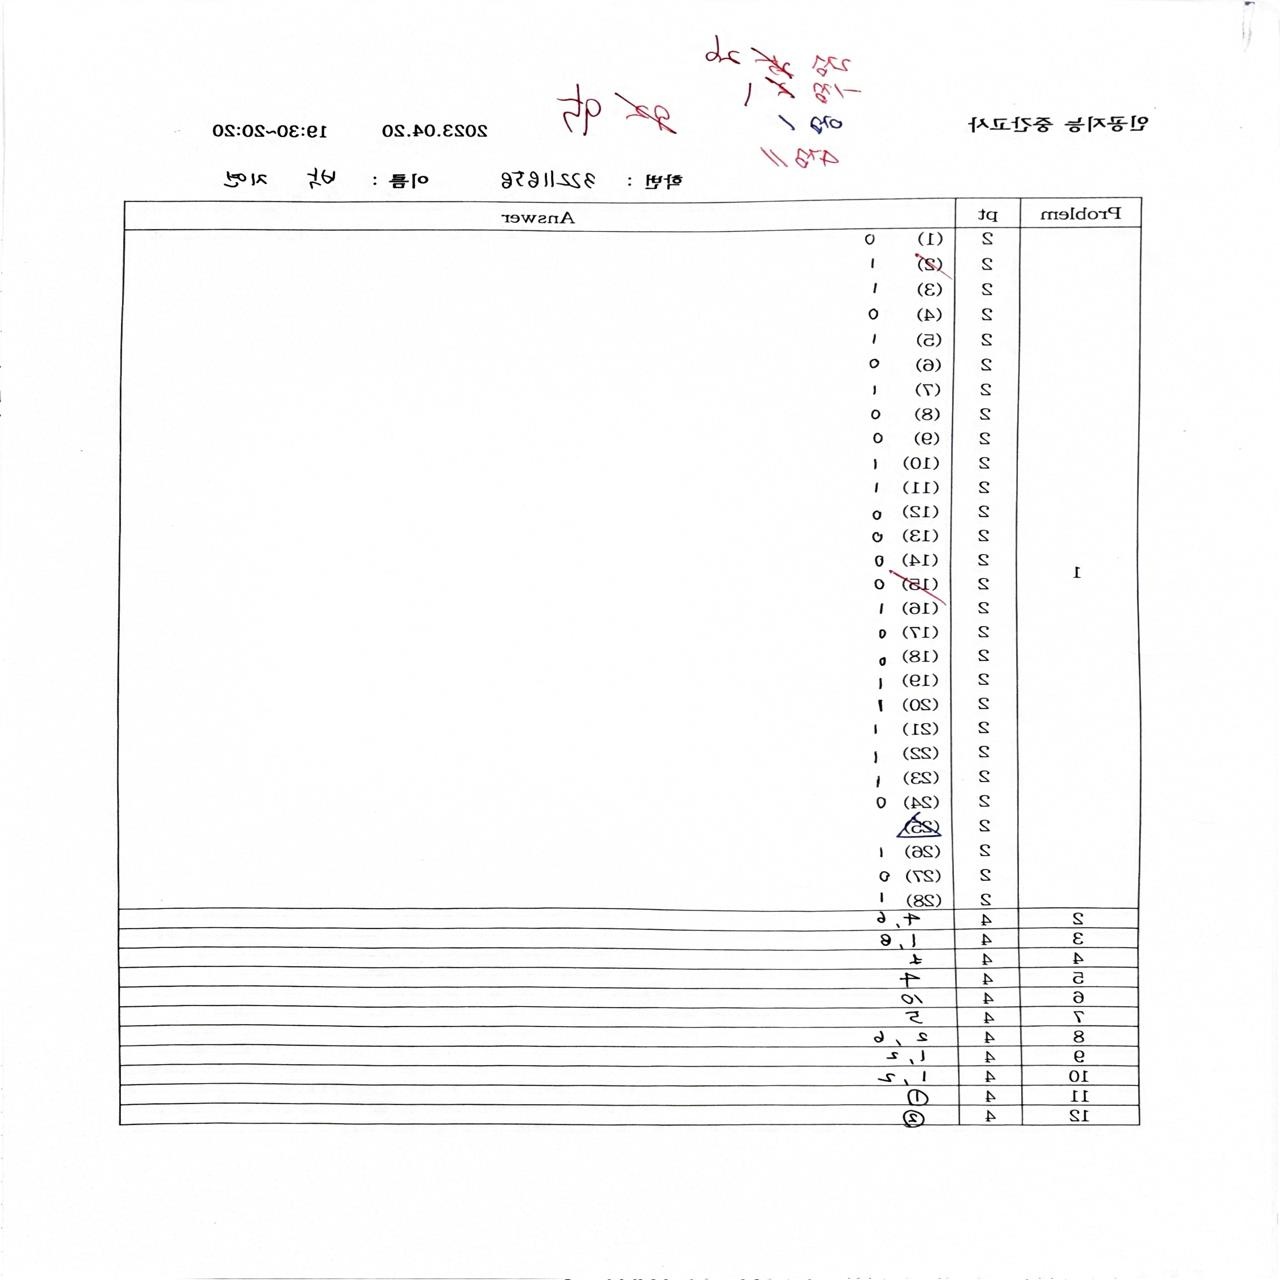 2점 26
1점 1
양 1
4점 11
95
인공지능 중간고사 2023.04.20 19:30~20:20
학번 : 32211656 이름 : 박 지연
Problem pt Answer
1
2 (1) 0
2 (2) 1
2 (3) 1
2 (4) 0
2 (5) 1
2 (6) 0
2 (7) 1
2 (8) 0
2 (9) 0
2 (10) 1
2 (11) 1
2 (12) 0
2 (13) 0
2 (14) 0
2 (15) 0
2 (16) 1
2 (17) 0
2 (18) 0
2 (19) 1
2 (20) 1
2 (21) 1
2 (22) 1
2 (23) 1
2 (24) 0
2 (25)
2 (26) 1
2 (27) 0
2 (28) 1
2 4 4, 6
3 4 1, 8
4 4 4
5 4 4
6 4 10
7 4 5
8 4 2, 6
9 4 1, 5
10 4 1, 5
11 4 ①
12 4